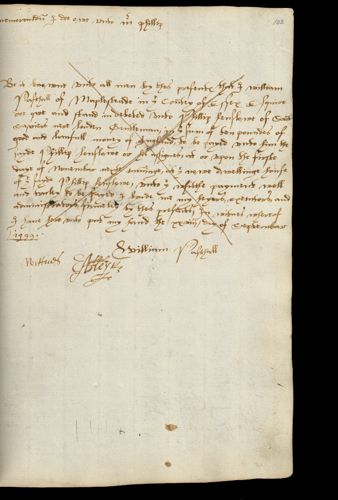 memorandum I doe owe unto Mr Phillip
102
Be it knowne unto all men by thes presents that I William
Pastall of Maplestede in ye County of Essex Esquire
doe owe and stand indebted unto Phillip Henslowe of
neer London Gentleman ye som of ten poundes of
good and lawfull mony of England to be payed unto him the
sayde Phillip Henslowe or his assignes at or upon the first
daye of November next ensuing, at ye now dwellinge house
of ye sayde Phillip Henslowe, unto ye which payment well
and truely to be payed I binde me my heyres, executors and
administrators by thes presentes. In witnes wherof
I have here unto put my hand the day of September
1599.
William Pastall
Witnes